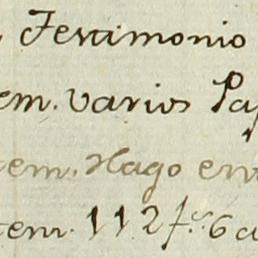 Testimonio
em. varios Pa
em. Hago en
tem. 112 f.s 6